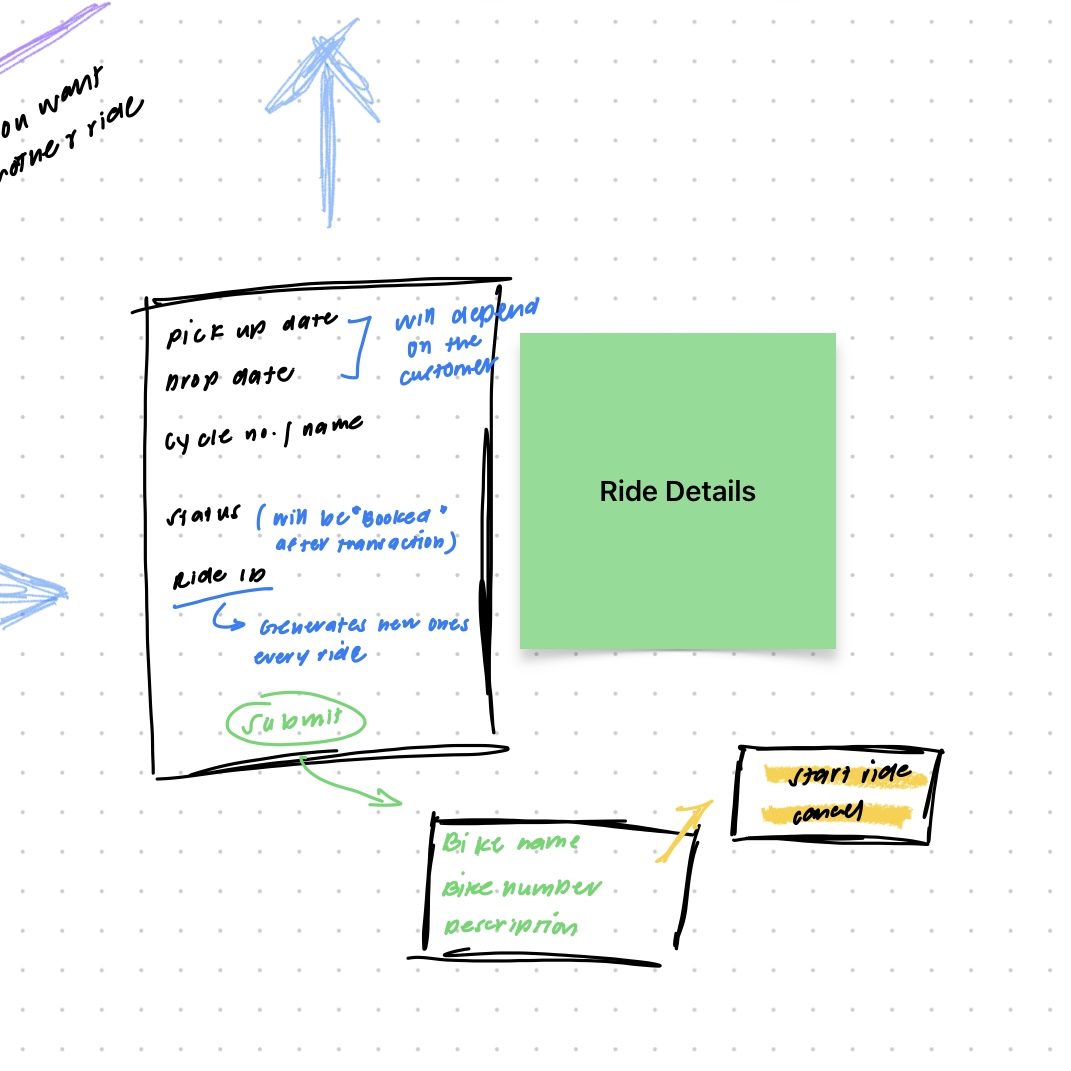 on want
nother ride
pick up date
Drop date
will depend
on the
customer
cycle no. / name
status (will be "Booked"
after transaction)
Ride ID
Generates new ones
every ride
Submit
Ride Details
Bike name
Bike number
Description
start ride
cancel